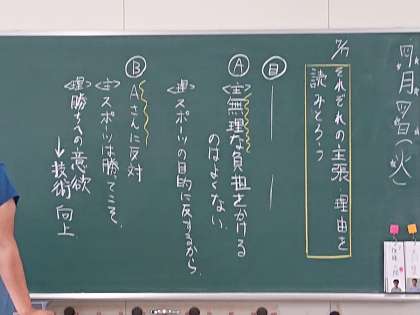 四月
(火)
それぞれの主張・理由を
読みとろう
目
Ⓐ
<主>無理な負担をかける
のはよくない。
<理>スポーツの目的に反するから。
Ⓑ
Aさんに反対
<主>スポーツは勝ってこそ。
<理>勝ちへの意欲
→技術向上